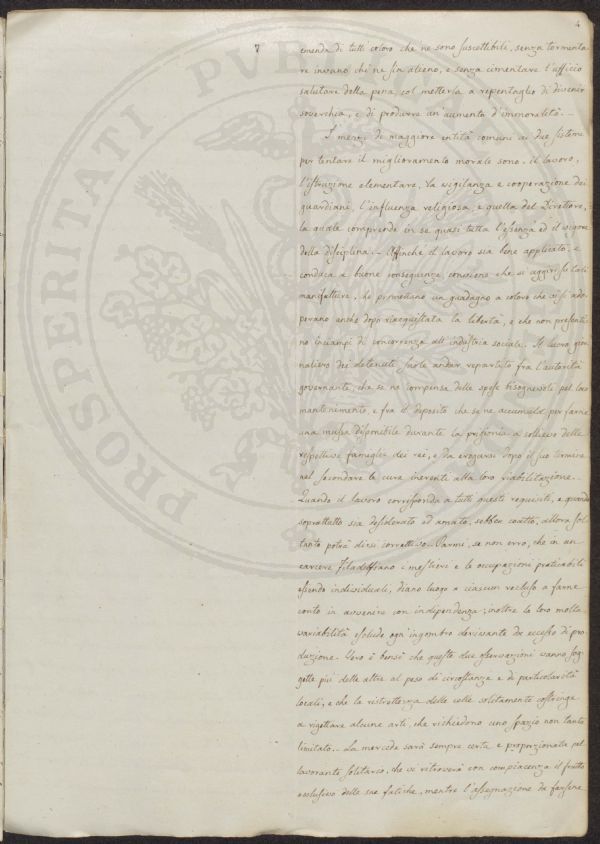 4
7
emenda di tutti coloro che ne sono suscettibili, senza tormenta
re invano chi ne sia alieno, e senza cimentare l'ufficio
salutare della pena col metterla a repentaglio di divenir
soverchia, e di produrre un'aumento d'immoralità. –
I mezzi di maggiore entità comuni ai due sistemi
per tentare il miglioramento morale sono, il lavoro,
l'istruzione elementare, la vigilanza e cooperazione dei
guardiani, l'influenza religiosa, e quella del Direttore,
la quale comprende in se quasi tutta l'essenza ed il vigore
della disciplina. – Affinchè il lavoro sia bene applicato, e
conduca a buone conseguenze conviene che si aggiri su tali
manifatture, che promettano un guadagno a coloro che vi si ado
perano anche dopo riacquistata la libertà, e che non presenti
no inciampi di concorrenza all'industria sociale. Il lucro gior
naliero dei detenuti suole andar repartito fra l'autorità
governante, che se ne compensa delle spese bisognevoli pel loro
mantenimento, e fra il deposito che se ne accumula per farne
una massa disponibile durante la prigionia a sollievo delle
respettive famiglie dei rei, e da erogarsi dopo il suo termine
nel secondare le cure inerenti alla loro riabilitazione. –
Quando il lavoro corrisponda a tutti questi requisiti, e quando
soprattutto sia desiderato ed amato, sebben coatto, allora sol
tanto potrà dirsi correttivo. – Parmi, se non erro, che in un
carcere Filadelfiano i mestieri e le occupazioni praticabili
essendo individuali, diano luogo a ciascun recluso a farne
conto in avvenire con indipendenza; inoltre la loro molta
variabilità esclude ogn'ingombro derivante da eccesso di pro
duzione. Vero è bensì che queste due osservazioni vanno sog
gette più delle altre al peso di circostanze e di particolarità
locali, e che la ristrettezza delle celle solitamente costringe
a rigettare alcune arti, che richiedono uno spazio non tanto
limitato. – La mercede sarà sempre certa e proporzionata pel
lavorante solitario, che vi ritroverà con compiacenza il frutto
esclusivo delle sue fatiche, mentre l'assegnazione da farsene
PROSPERITATI PVBLICAE